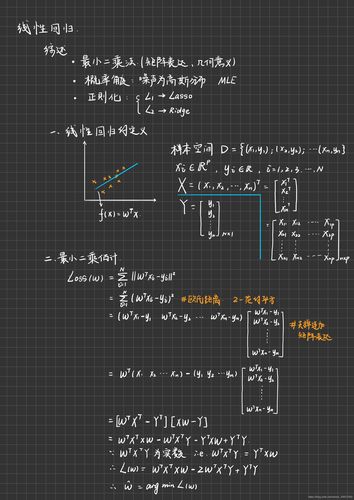 线性回归
综述
• 最小二乘法 (矩阵表达, 几何意义)
• 概率角度: 噪声为高斯分布 MLE
• 正则化: { L₁ → Lasso
L₂ → Ridge
一. 线性回归的定义
样本空间 D = {(x₁,y₁), (x₂,y₂), ⋯ (xₙ,yₙ)}
xᵢ ∈ ℝᵖ, yᵢ ∈ ℝ, i=1,2,3...N
X = (x₁, x₂, ⋯, xₙ)ᵀ = [x₁ᵀ x₂ᵀ ⋮ xₙᵀ]
Y = [y₁ y₂ ⋮ yₙ] N×1
= [x₁₁ x₁₂ ⋯ x₁ₚ
x₂₁ x₂₂ ⋯ x₂ₚ
⋮ ⋮ ⋮
xₙ₁ xₙ₂ ⋯ xₙₚ] N×P
f(x) = wᵀx
二. 最小二乘估计
Loss(w) = Σᵢ₌₁ᴺ ||wᵀxᵢ-yᵢ||²
= Σᵢ₌₁ᴺ (wᵀxᵢ-yᵢ)² #欧氏距离 2-范数平方
= (wᵀx₁-y₁ wᵀx₂-y₂ ⋯ wᵀxₙ-yₙ) [wᵀx₁-y₁ wᵀx₂-y₂ ⋮ wᵀxₙ-yₙ]
矩阵表达
= wᵀ(x₁ x₂ ⋯ xₙ) - (y₁ y₂ ⋯ yₙ) [wᵀx₁-y₁ wᵀx₂-y₂ ⋮ wᵀxₙ-yₙ]
= [wᵀXᵀ-Yᵀ][Xw-Y]
= wᵀXᵀXw - wᵀXᵀY - YᵀXw + YᵀY
∵ wᵀXᵀY 为实数 i.e. wᵀXᵀY = YᵀXw
∴ L(w) = wᵀXᵀXw - 2wᵀXᵀY + YᵀY
∴ ŵ = arg min L(w)